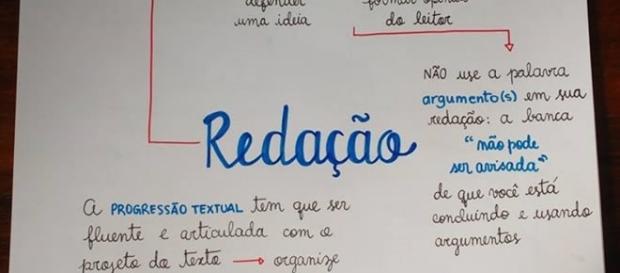 defender
uma ideia
formar opinião
do leitor
NÃO use a palavra
argumento(s) em sua
redação: a banca
"não pode
ser avisada"
de que você está
concluindo e usando
argumentos
Redação
A PROGRESSÃO TEXTUAL tem que ser
fluente e articulada com o
projeto do texto → organize